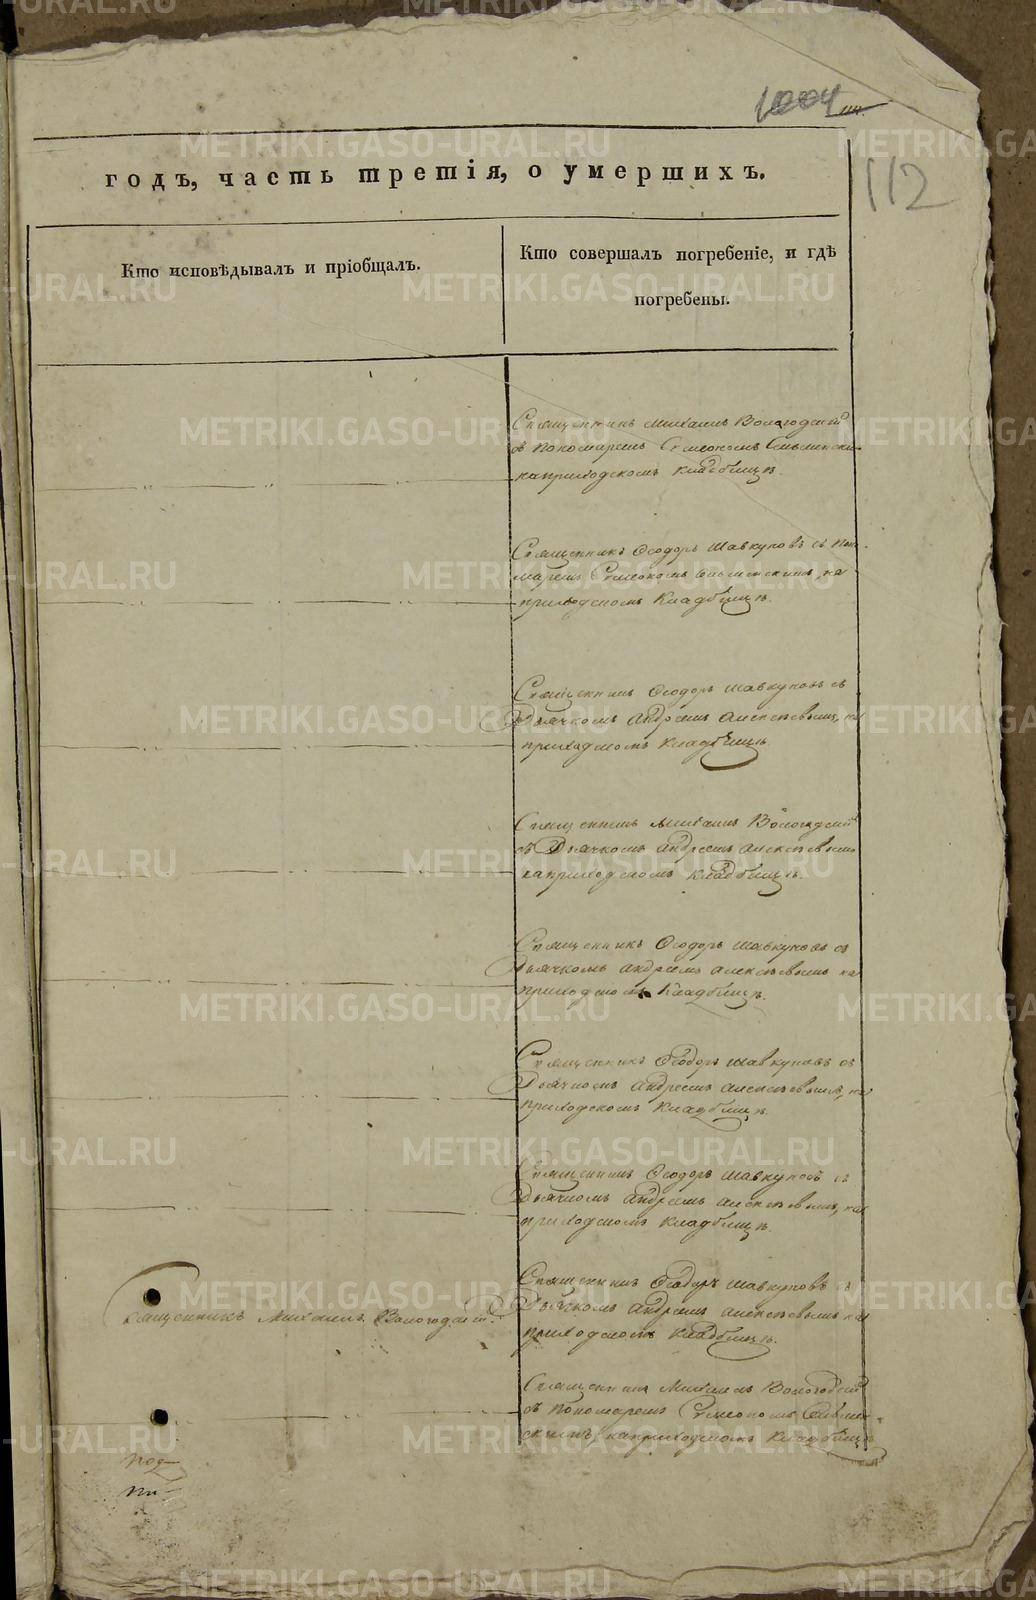 1004
112
годъ, часть третія, о умершихъ.
Кто исповѣдывалъ и пріобщалъ.
Кто совершалъ погребеніе, и гдѣ
погребены.
Священникъ Михаилъ Вологодскій
съ Пономаремъ Симеономъ
на приходскомъ кладбищѣ.
Священникъ Ѳеодоръ Шавкуновъ съ Поно-
маремъ Симеономъ на
приходскомъ Кладбищѣ.
Священникъ Ѳеодоръ Шавкуновъ съ
Дьячкомъ Андреемъ Алексѣевымъ, на
приходскомъ Кладбищѣ.
Священникъ Михаилъ Вологодскій
съ Дьячкомъ Андреемъ Алексѣевымъ
на приходскомъ кладбищѣ.
Священникъ Ѳеодоръ Шавкуновъ съ
Дьячкомъ Андреемъ Алексѣевымъ на
приходскомъ Кладбищѣ.
Священникъ Ѳеодоръ Шавкуновъ съ
Дьячкомъ Андреемъ Алексѣевымъ, на
приходскомъ Кладбищѣ.
Священникъ Ѳеодоръ Шавкуновъ съ
Дьячкомъ Андреемъ Алексѣевымъ, на
приходскомъ Кладбищѣ.
Священникъ Михаилъ Вологодскій.
Священникъ Ѳеодоръ Шавкуновъ съ
Дьячкомъ Андреемъ Алексѣевымъ на
приходскомъ Кладбищѣ.
Священникъ Михаилъ Вологодскій
съ Пономаремъ Симеономъ
на приходскомъ Кладбищѣ
METRIKI.GASO-URAL.RU